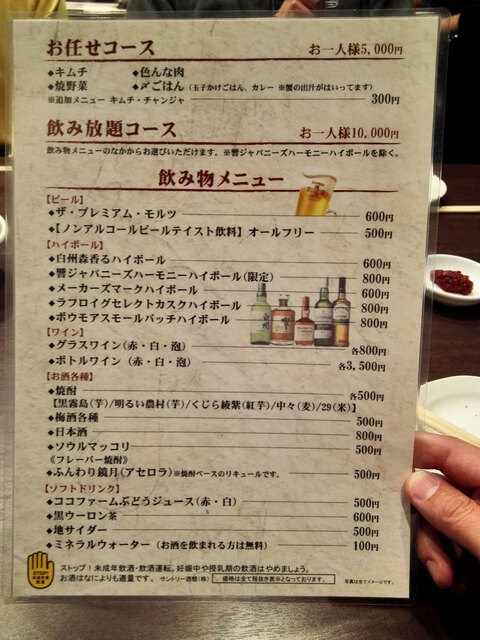 お任せコース お一人様5,000円
◆キムチ ◆色んな肉
◆焼野菜 ◆〆ごはん(玉子かけごはん、カレー ※蟹の出汁がはいってます)
※追加メニュー キムチ・チャンジャ 300円
飲み放題コース お一人様10,000円
飲み物メニューのなかからお選びいただけます。※響ジャパニーズハーモニーハイボールを除く。
飲み物メニュー
【ビール】
◆ザ・プレミアム・モルツ 600円
◆【ノンアルコールビールテイスト飲料】オールフリー 500円
【ハイボール】
◆白州森香るハイボール 600円
◆響ジャパニーズハーモニーハイボール(限定) 800円
◆メーカーズマークハイボール 600円
◆ラフロイグセレクトカスクハイボール 800円
◆ボウモアスモールバッチハイボール 800円
【ワイン】
◆グラスワイン(赤・白・泡) 各800円
◆ボトルワイン(赤・白・泡) 各3,500円
【お酒各種】
◆焼酎 各500円
【黒霧島(芋)/明るい農村(芋)/くじら綾紫(紅芋)/中々(麦)/29(米)】
◆梅酒各種 500円
◆日本酒 800円
◆ソウルマッコリ 500円
《フレーバー焼酎》
◆ふんわり鏡月(アセロラ)※焼酎ベースのリキュールです。 500円
【ソフトドリンク】
◆ココファームぶどうジュース(赤・白) 500円
◆黒ウーロン茶 600円
◆地サイダー 500円
◆ミネラルウォーター(お酒を飲まれる方は無料) 100円
STOP!
ストップ!未成年飲酒・飲酒運転。妊娠中や授乳期の飲酒はやめましょう。
お酒はなによりも適量です。 サントリー酒類(株) 価格は全て税抜き表示となっております。 写真は全てイメージです。